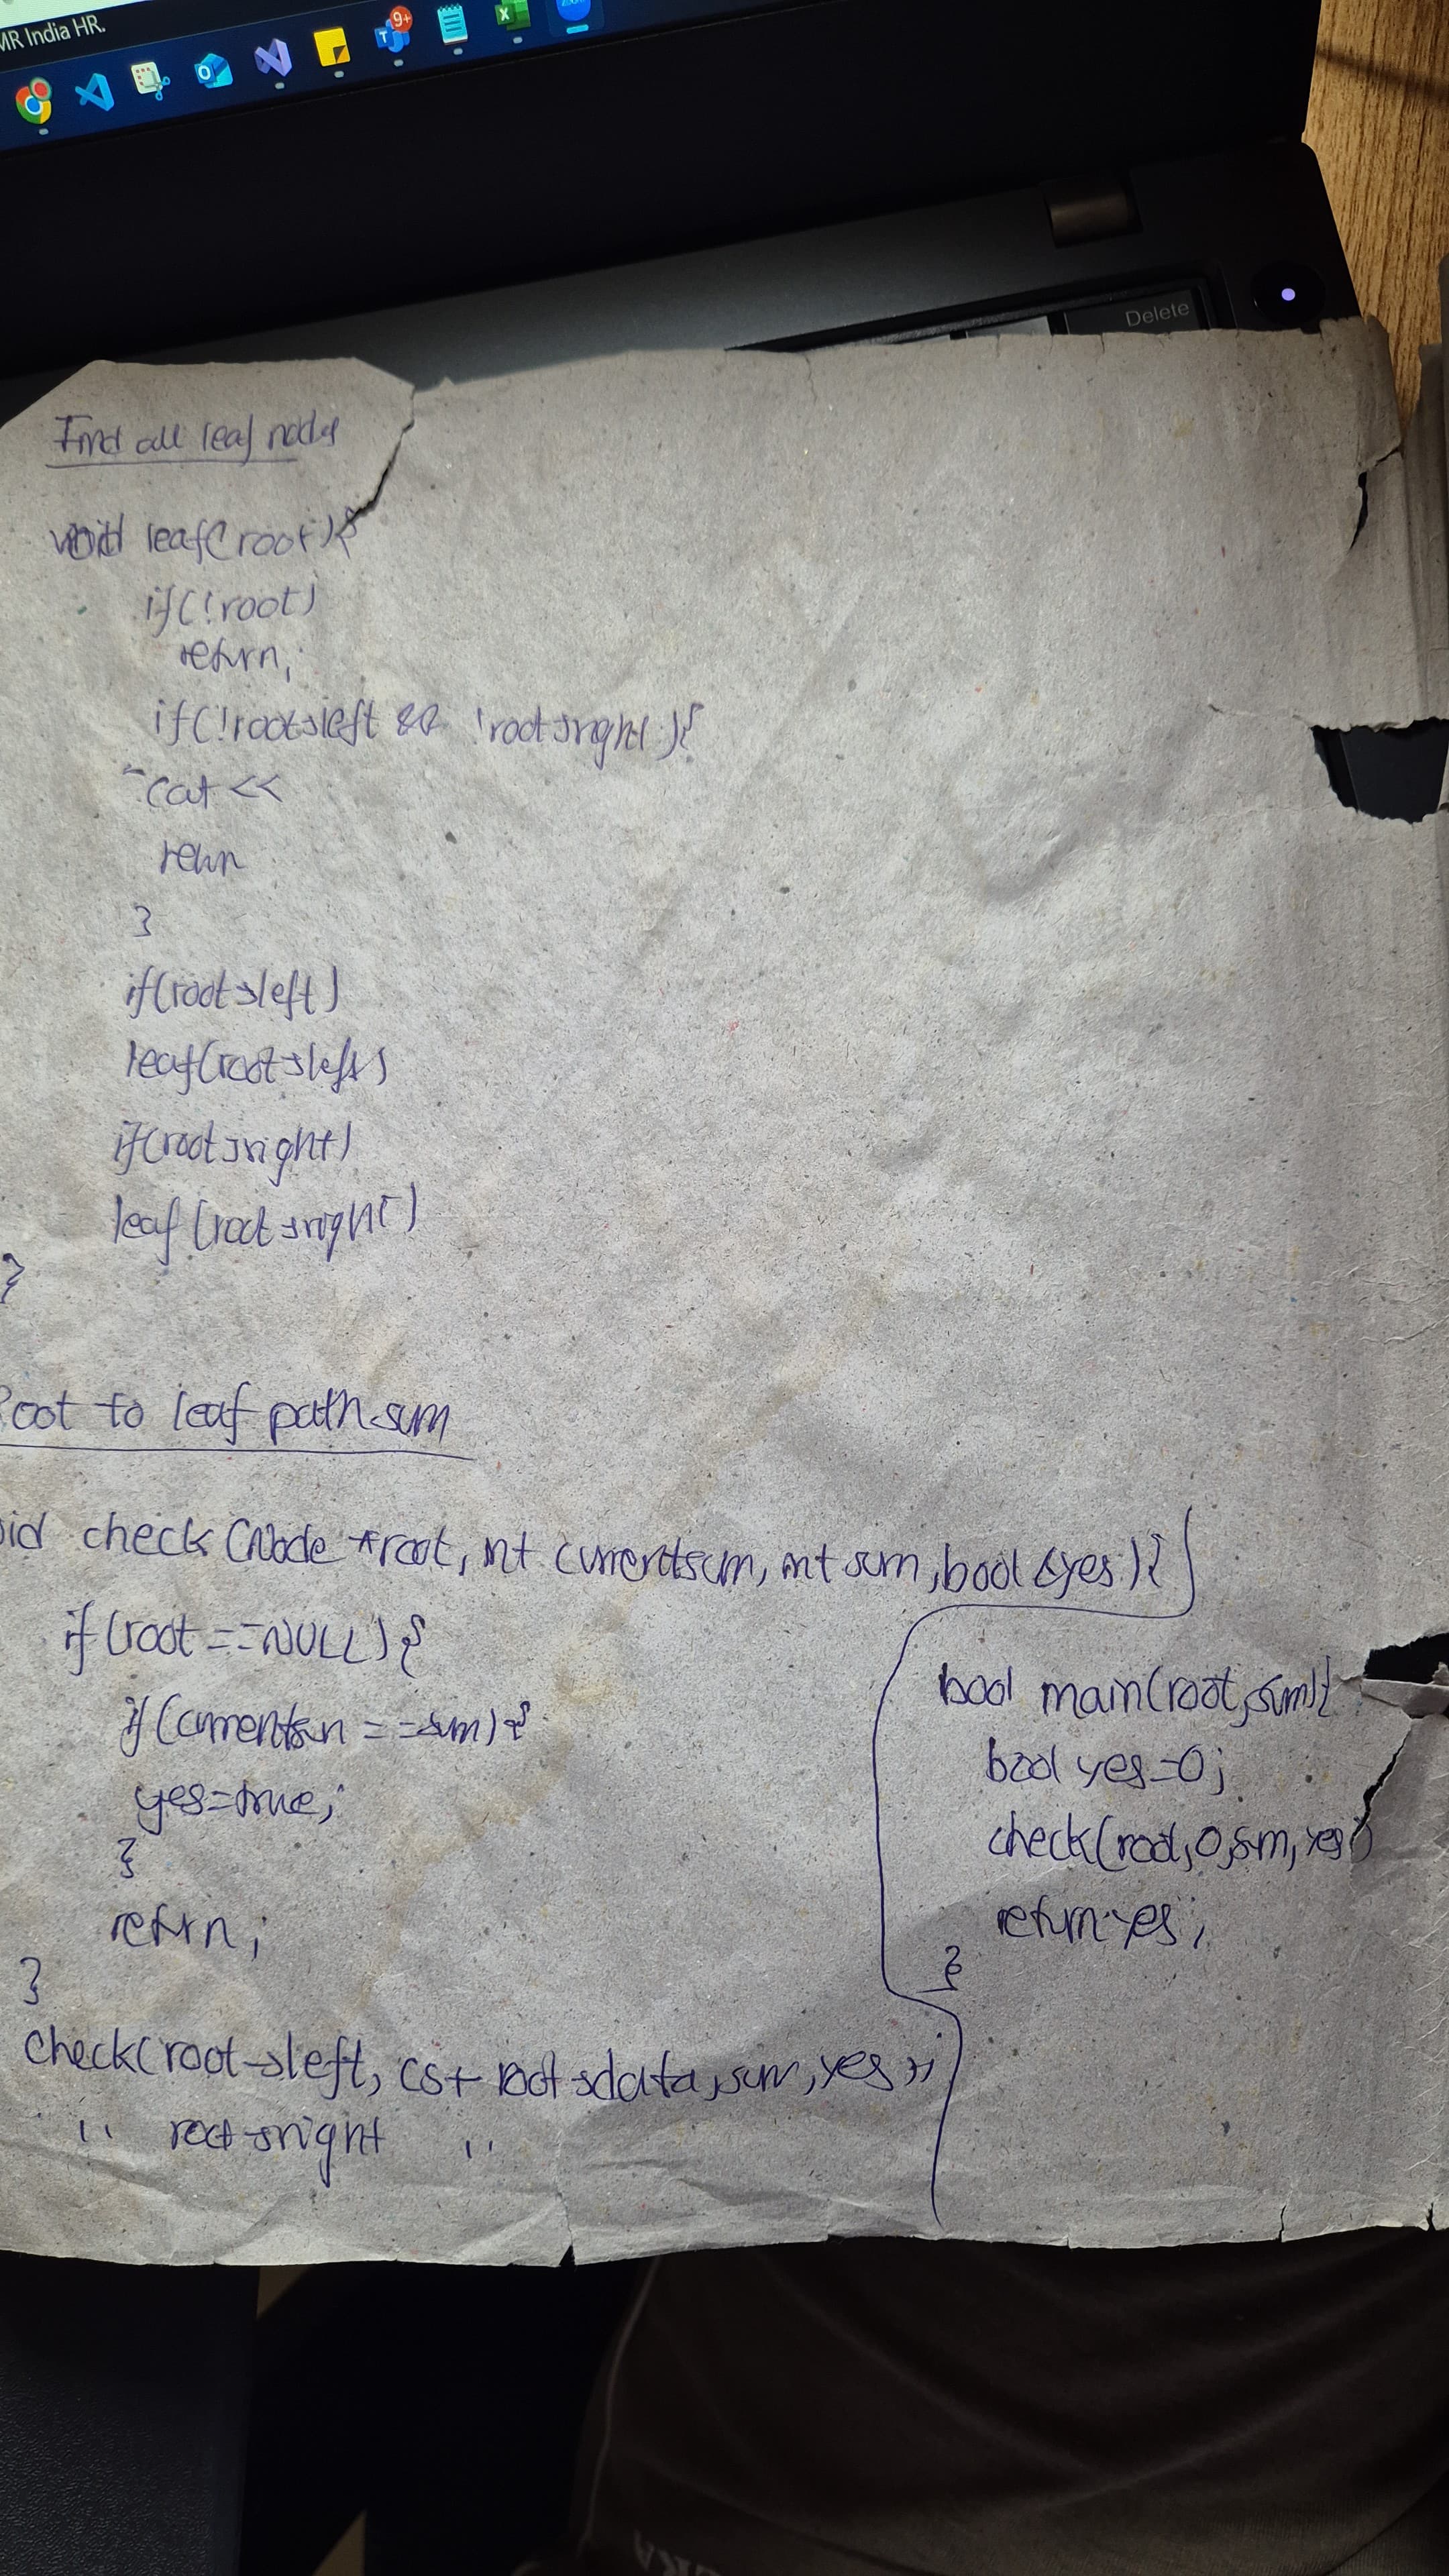 MR India HR.
9+
Delete
Find all leaf nodes
void leaf(root){
if(!root)
return;
if(!root->left && !root->right){
cout <<
return
}
if(root->left)
leaf(root->left)
if(root->right)
leaf(root->right)
}
Root to leaf path sum
void check(Node *root, int currentsum, int sum, bool &yes){
if(root==NULL){
if(currentsum==sum){
yes=true;
}
return;
}
check(root->left, cs+root->data, sum, yes);
" root->right "
bool main(root, sum){
bool yes=0;
check(root, 0, sum, yes)
return yes;
}